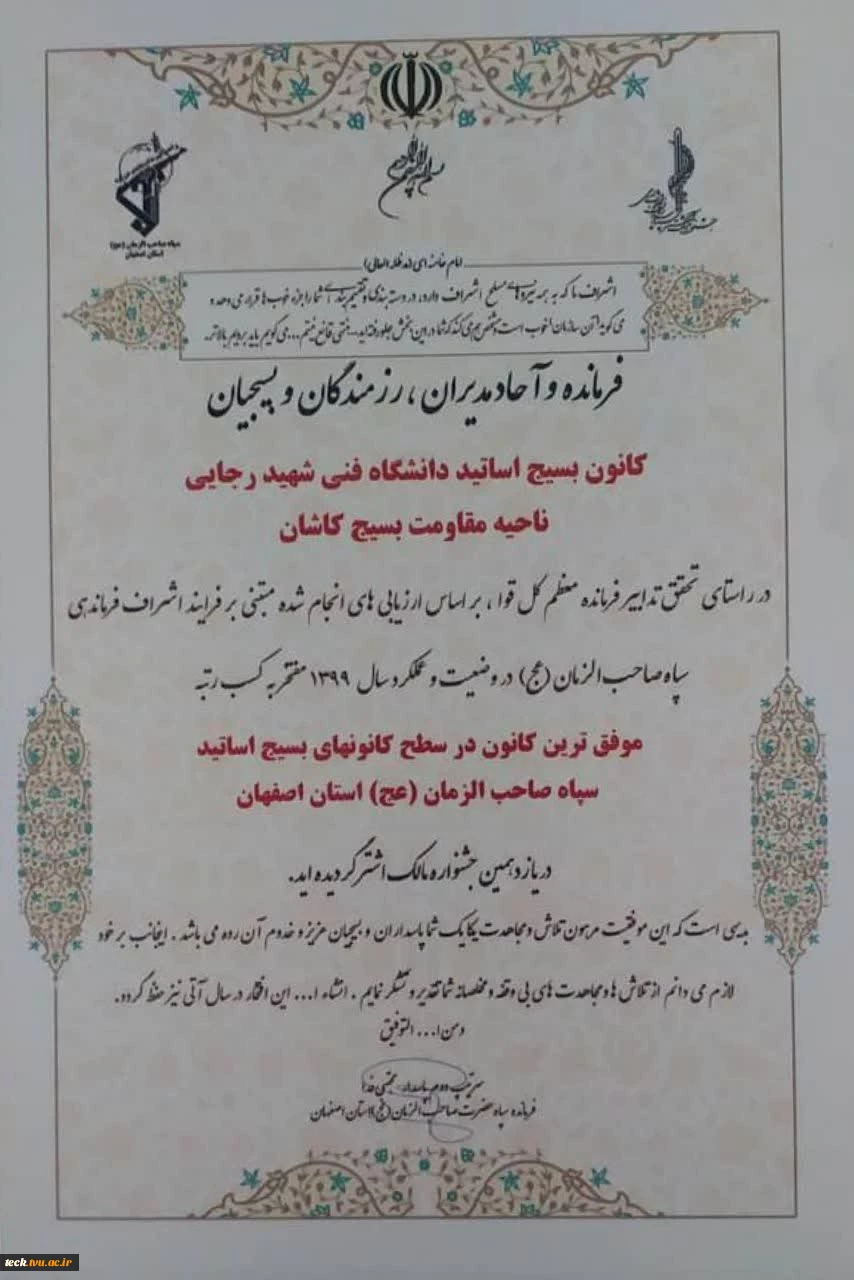 بسم الله الرحمن الرحیم
سپاه صاحب الزمان (عج)
استان اصفهان
امام خامنه ای (مد ظله العالی)
اشراف ما که به همه نیروهای مسلح اشراف دارد، در دسته بندی و تقسیم بندی، شما را جزء خوب ها قرار می دهد و
می گوید آن سازمان خوب است و مشخص هم می کند که شما در این بخش جلو رفته اید...منتهی قانع نیستم...می گویم باید برویم بالاتر.
فرمانده و آحاد مدیران ، رزمندگان و بسیجیان
کانون بسیج اساتید دانشگاه فنی شهید رجایی
ناحیه مقاومت بسیج کاشان
در راستای تحقق تدابیر فرمانده معظم کل قوا ، بر اساس ارزیابی های انجام شده مبتنی بر فرایند اشراف فرماندهی
سپاه صاحب الزمان (عج) در وضعیت و عملکرد سال ۱۳۹۹ مفتخر به کسب رتبه
موفق ترین کانون در سطح کانونهای بسیج اساتید
سپاه صاحب الزمان (عج) استان اصفهان
در یازدهمین جشنواره مالک اشتر گردیده اید.
بدیهی است که این موفقیت مرهون تلاش و مجاهدت یکایک شما پاسداران و بسیجیان عزیز و خدوم آن رده می باشد . اینجانب بر خود
لازم می دانم از تلاش ها و مجاهدت های بی وقفه و مخلصانه شما تقدیر و تشکر نمایم . انشاء ا... این افتخار در سال آتی نیز حفظ گردد.
ومن ا... التوفیق
سرتیپ دوم پاسدار مجتبی فدا
فرمانده سپاه حضرت صاحب الزمان (عج) استان اصفهان
teck.tvu.ac.ir